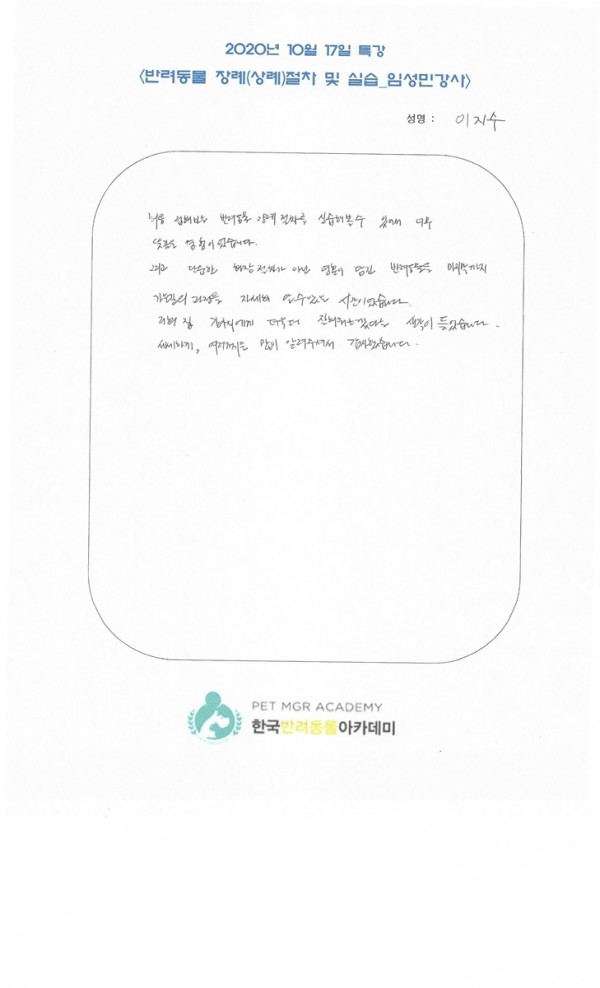 2020년 10월 17일 특강
<반려동물 장례(상례)절차 및 실습_임성민강사>
성명 : 이지수
처음 접해보는 반려동물 장례 절차를 실습해볼수 있어서 너무
뜻깊은 경험이었습니다.
그리고 단순한 화장 절차가 아닌 영혼이 담긴 반려동물을 마지막까지
가는길의 과정을 자세히 알 수 있는 시간이었습니다.
저희 집 강아지에게 더욱더 잘해줘야겠다는 생각이 들었습니다.
세세하게, 여러가지를 많이 알려주셔서 감사했습니다.
PET MGR ACADEMY
한국반려동물아카데미